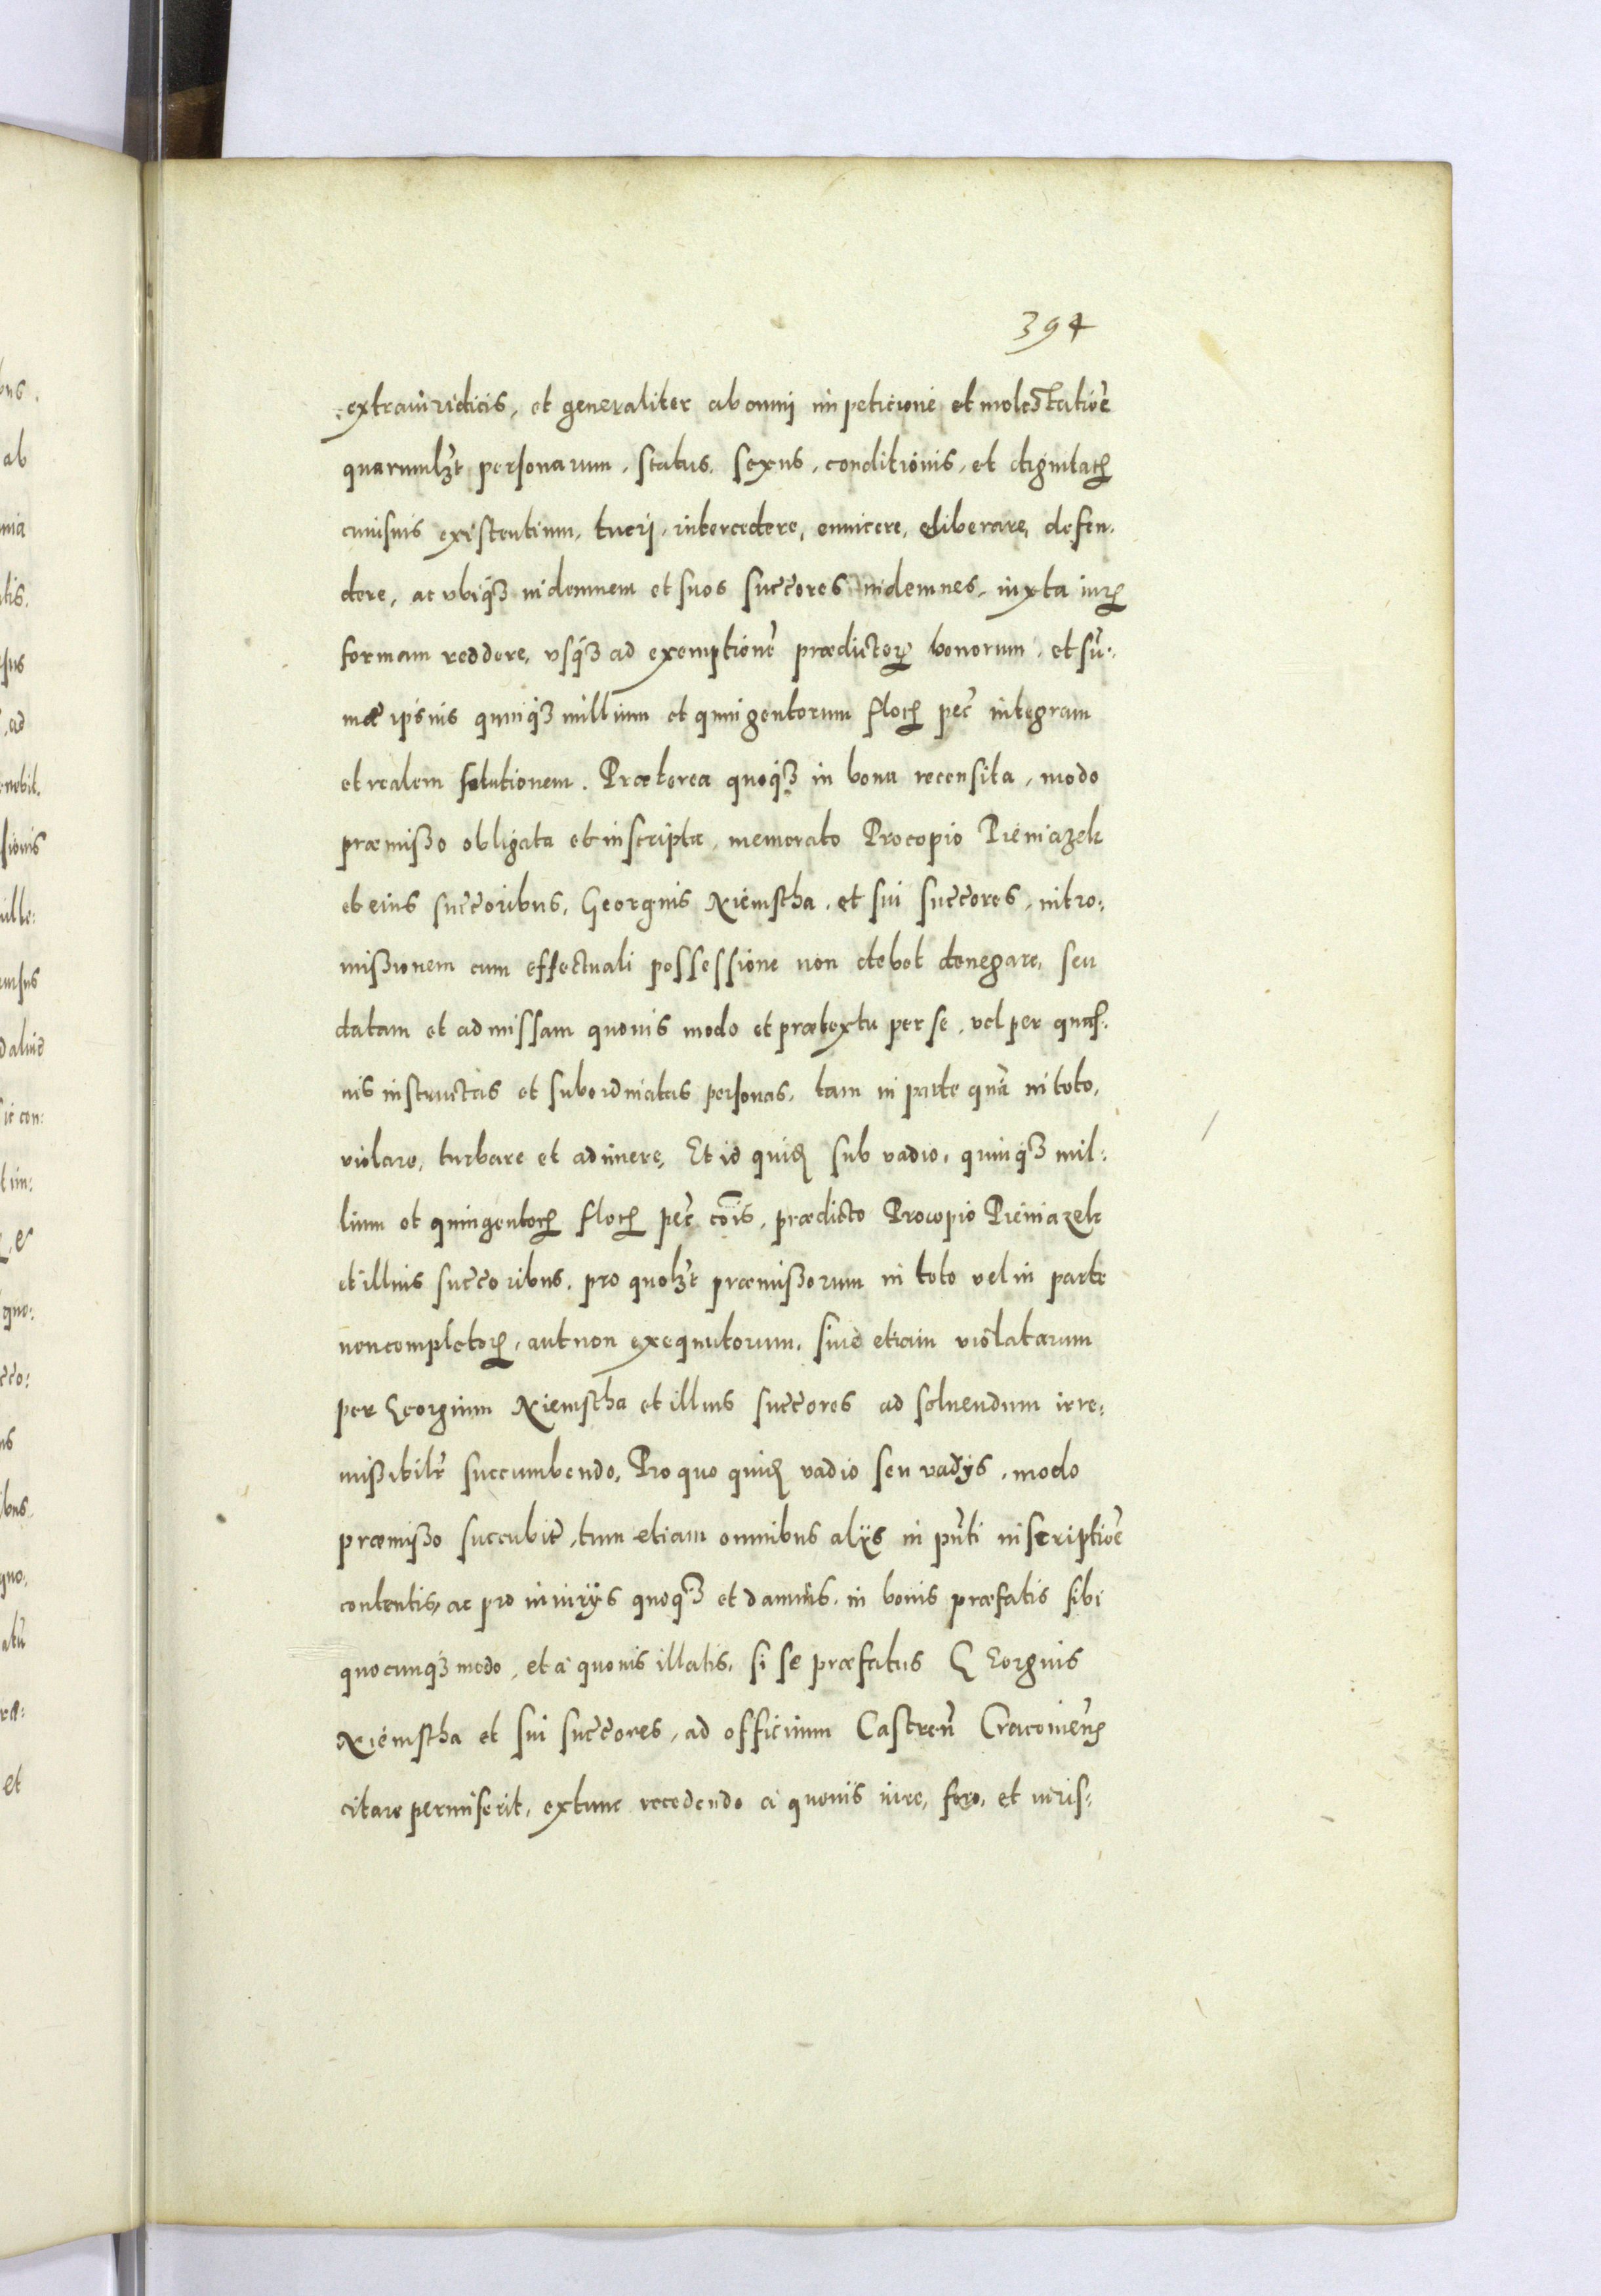 394
extraiuridicis, et generaliter ab omnj impeticione et molestatiōe
quarumlꝫt personarum, status, sexus, conditionis, et dignitatꝫ
cuiusuis existentium, tuerj, intercedere, euincere, eliberare, defen-
dere, ac vbiqꝫ indemnem et suos succ̄ores indemnes, iuxta iurꝫ
formam reddere, vsqꝫ ad exemptionē prædictorꝫ bonorum, et sū-
mæ ipsius quinqꝫ millium et quingentorum florꝫ pec̄ integram
et realem solutionem. Præterea quoqꝫ in bona recensita, modo
præmisso obligata et inscripta, memorato Procopio Pieniazek
et eius succ̄oribus, Georgius Niemstha, et sui succ̄ores, intro-
missionem cum effectuali possessione non debet denegare, seu
datam et admissam quouis modo et prætextu per se, vel per quas-
uis instructas et subordinatas personas, tam in parte quā in toto,
violare, turbare et adimere, Et id quidꝫ sub vadio, quinqꝫ mil-
lium et quingentorꝫ florꝫ pec̄ cōis, prædicto Procopio Pieniazek
et illius succ̄oribus, pro quolꝫt præmissorum in toto vel in parte
non completorꝫ, aut non exequutorum, siue etiam violatarum
per Georgium Niemstha et illius succ̄ores ad soluendum irre-
missibilr̄ succumbendo, Pro quo quidꝫ vadio seu vadijs, modo
præmisso succubit̄, tum etiam omnibus alijs in pn̄ti inscriptiōe
contentis, ac pro iniurijs quoqꝫ et damnis, in bonis præfatis sibi
quocunqꝫ modo, et à quouis illatis, si se præfatus Georgius
Niemstha et sui succ̄ores, ad officium Castren̄ Cracouien̄
citare permiserit, extunc recedendo à quouis iure, foro, et iuris-
bus.
ab
ad
et